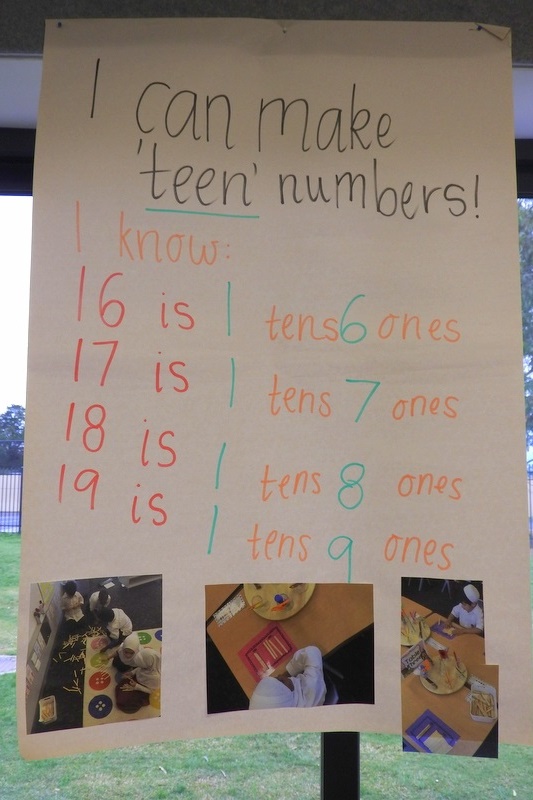 I can make
'teen' numbers!
I know:
16 is 1 tens 6 ones
17 is 1 tens 7 ones
18 is 1 tens 8 ones
19 is 1 tens 9 ones